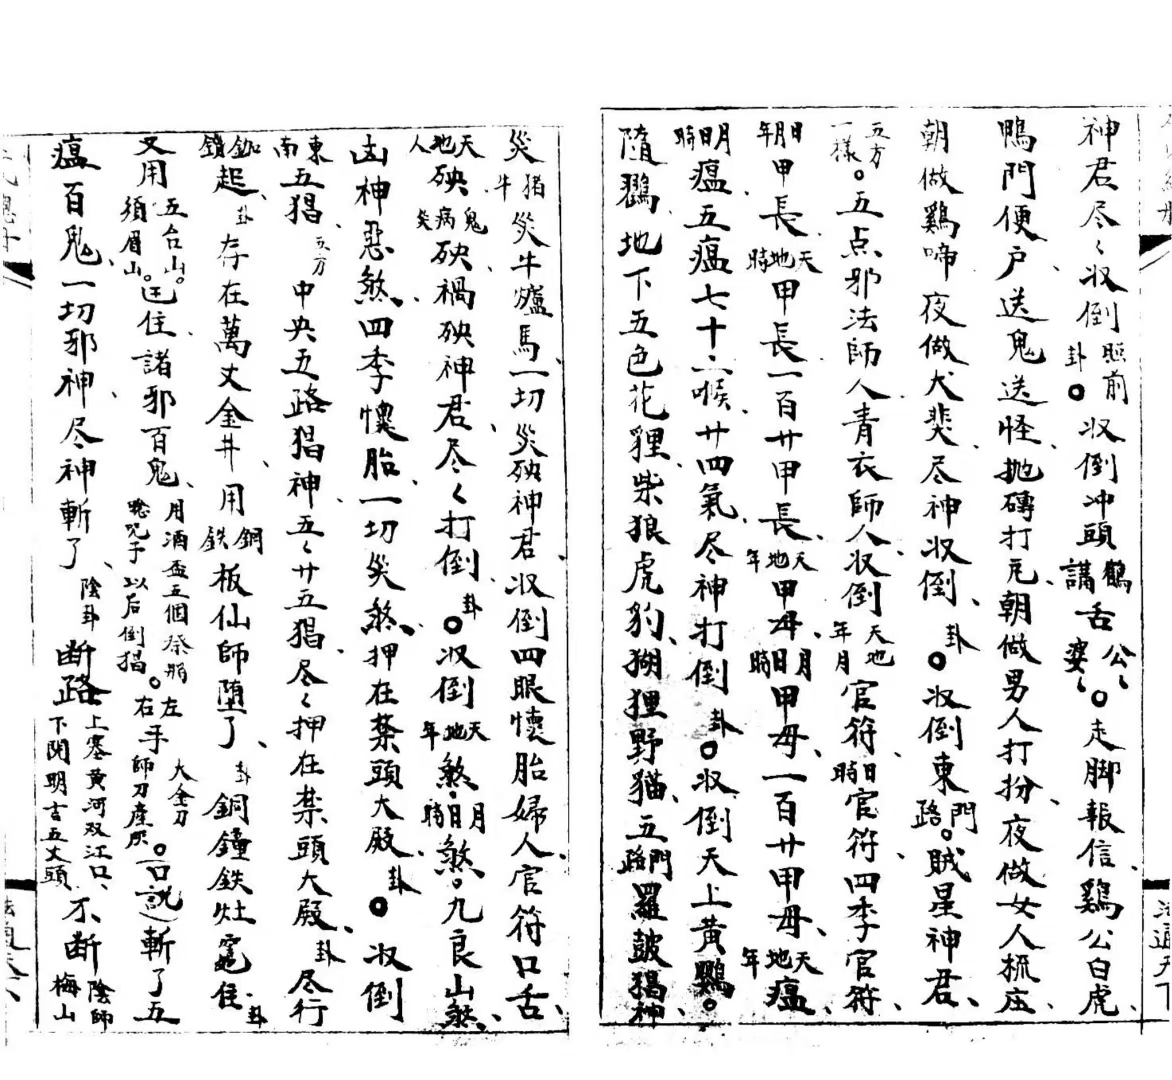 神君尽〻収倒照前卦。収倒冲頭鶴講舌公〻婆〻。走脚報信鷄公白虎、
鴨門便户送鬼送怪抛磚打瓦朝做男人打扮夜做女人梳庄
朝做鷄啼夜做犬斐尽神収倒、卦。収倒東門路。賊星神君、
五方一樣。五点邪法師人青衣師人収倒天地年月官符日時官符四季官符、
日月年甲長、天地時甲長一百廿甲長、天地年甲母月日時甲母一百廿甲母、天地年瘟
月日時瘟五瘟七十二喉廿四氣尽神打倒卦。収倒天上黄鸚。
隨鸚地下五色花貍柴狼虎豹、猢狸野猫、五門路羅鼓猖神、
災猪牛災牛爐馬、一切災殃神君収倒四眼懷胎婦人官符口舌、
天地人殃鬼病災殃禍殃神君尽〻打倒、卦。収倒天地年煞、月日時煞。九良山煞、
凶神惡煞、四季懷胎一切災煞、押在禁頭大殿、卦。収倒
東南五猖五方中央五路猖神、五〻廿五猖尽〻押在禁頭大殿、卦尽行
鈕鎖起卦存在萬丈金井、用銅鉄板仙師堕了、卦銅鐘鉄灶竈住、卦
又用五台山。須眉山。迊住諸邪百鬼、用酒盃五個祭猖左右手大金刀師刀。斬了五
瘟百鬼、一切邪神尽神斬了、陰卦断路上塞黄河双江口、下開明吉五丈頭不断陰師梅山